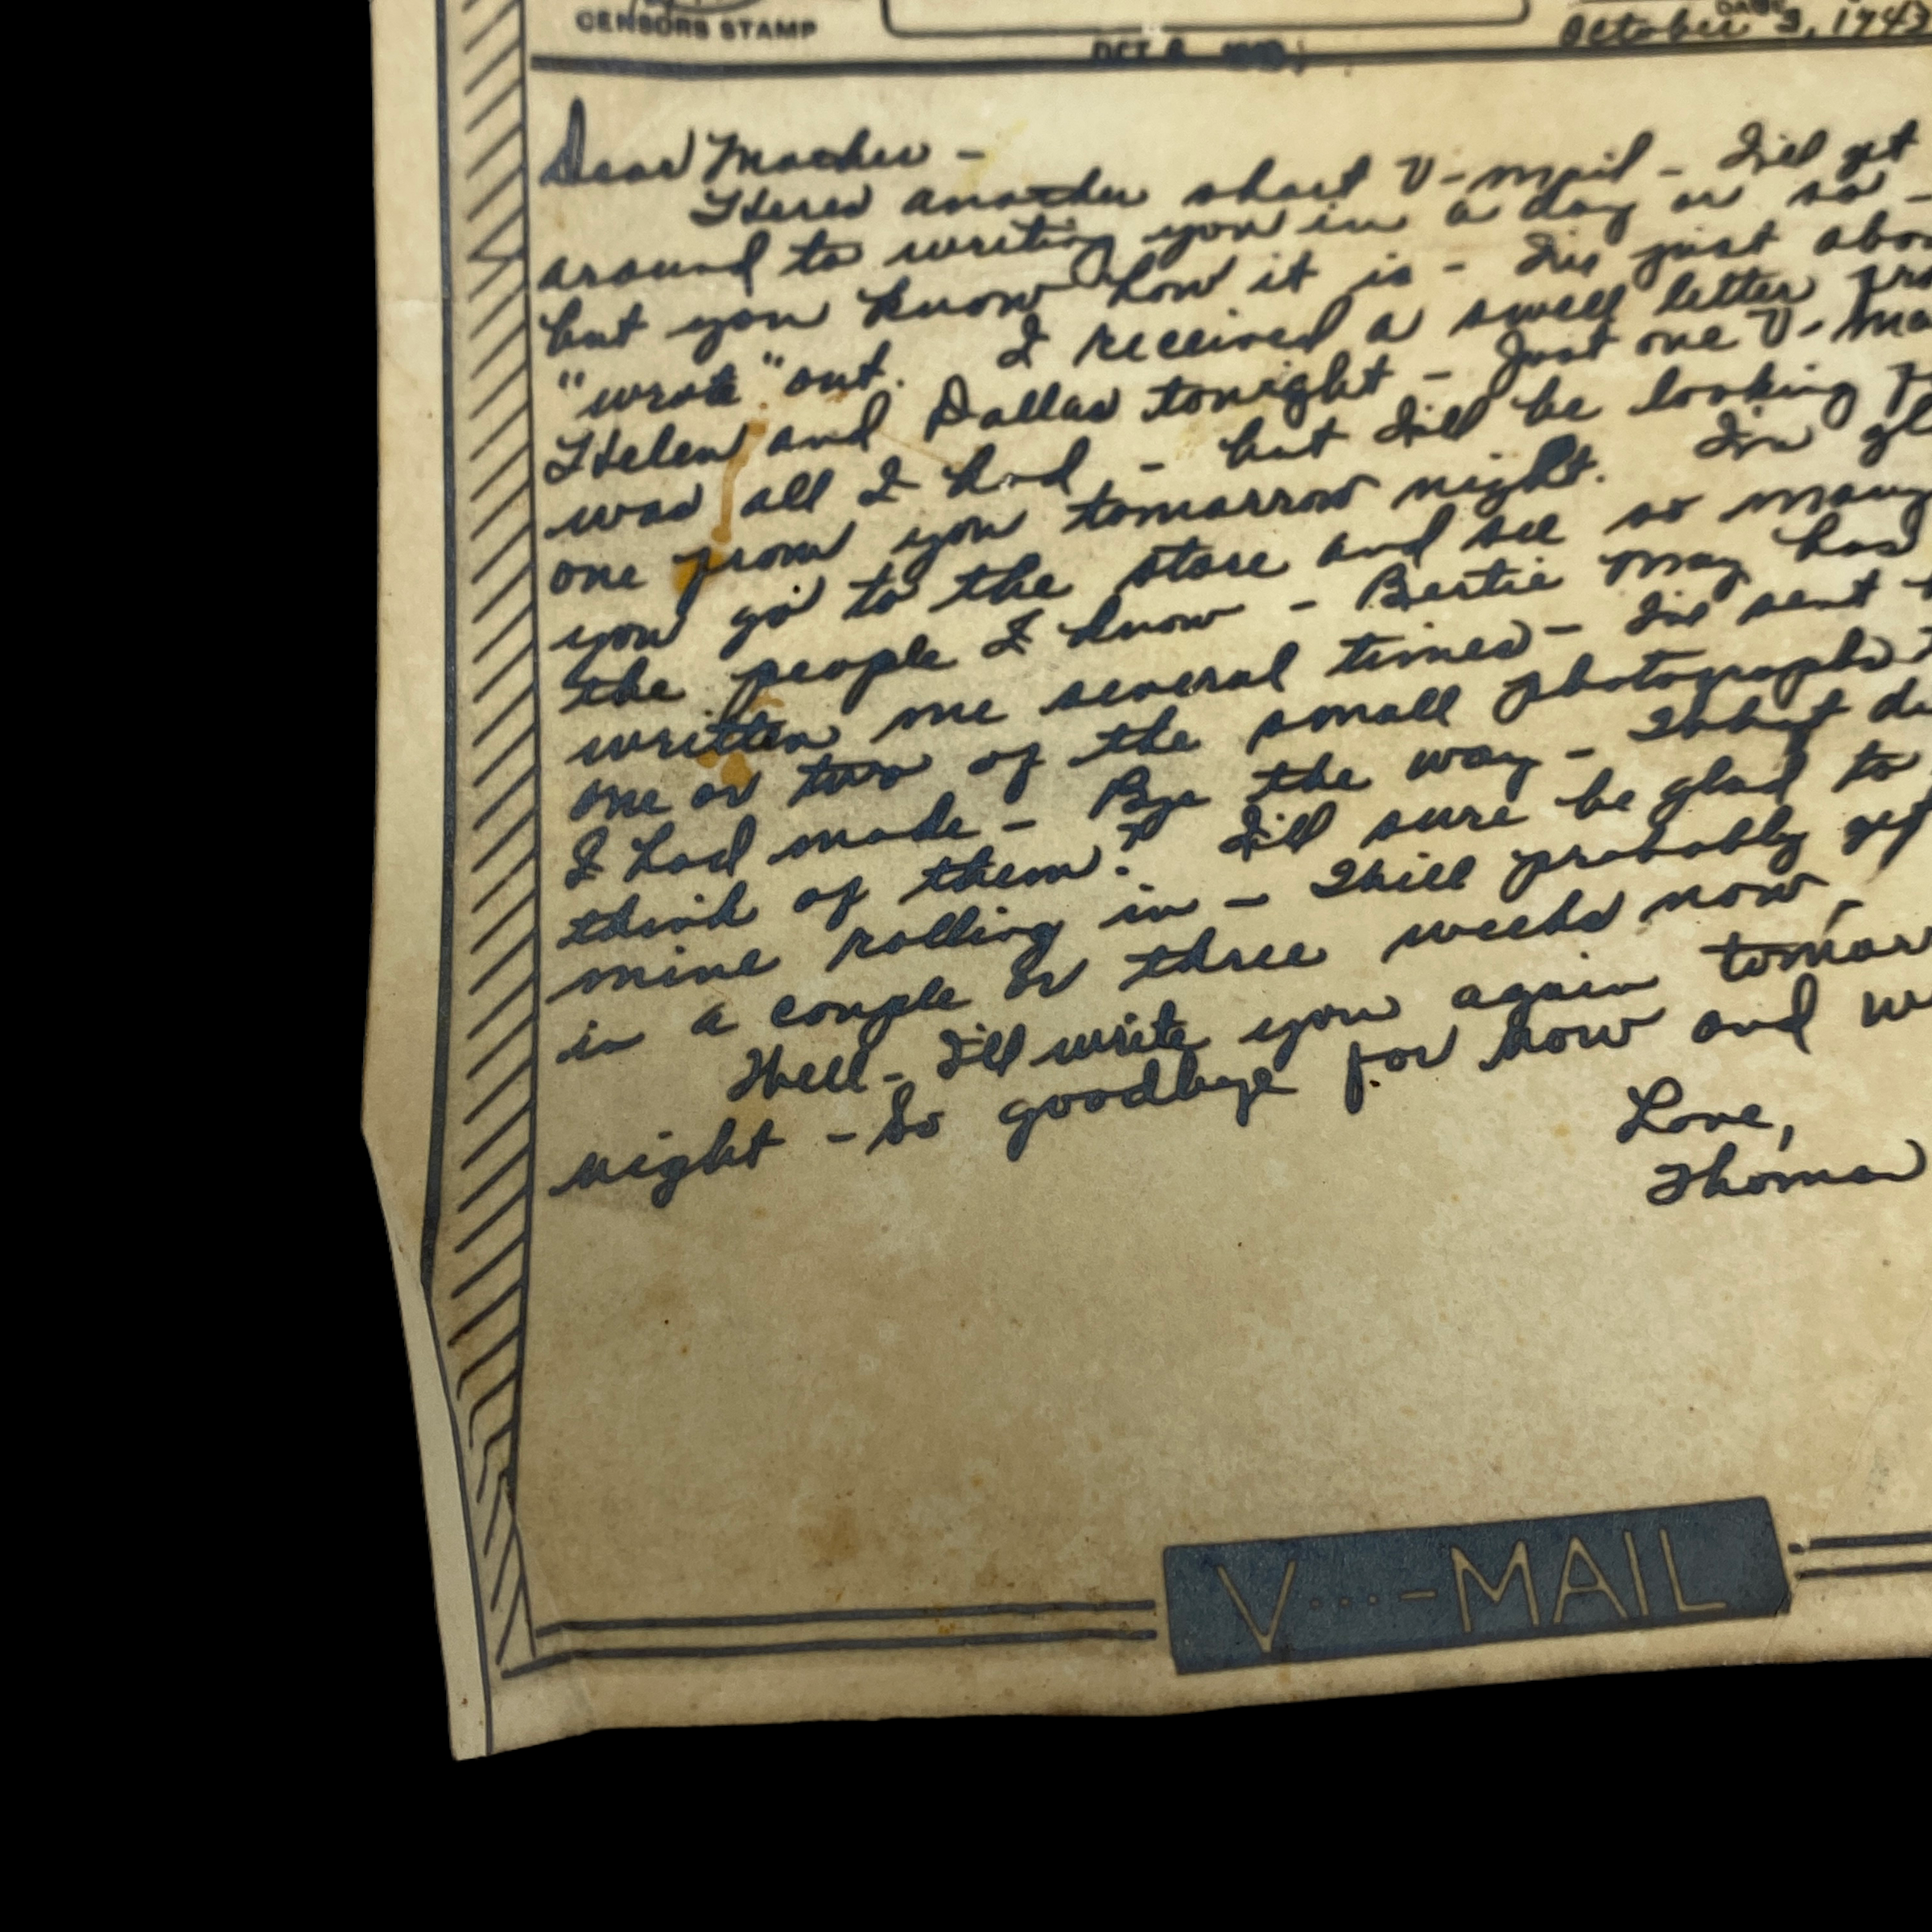 CENSORS STAMP
DATE
October 3, 1943
OCT
Dear Mother -
Heres another short V-mail - I'll get
around to writing you in a day or so -
but you know how it is - I've just
"wrote" out. I received a swell letter
Helen and Dallas tonight - Just one V-
was all I had - but I'll be looking
one from you tomorrow night. I'm
you go to the store and see so many
the people I know - Bertie May has
written me several times - I've sent
one or two of the small photographs
I had made - Bye the way - What
think of them? I'll sure be glad to
mine rolling in - Will probably get
in a couple or three weeks now,
Well - I'll write you again
night - So goodbye for now and
Love,
Thomas
V...-MAIL